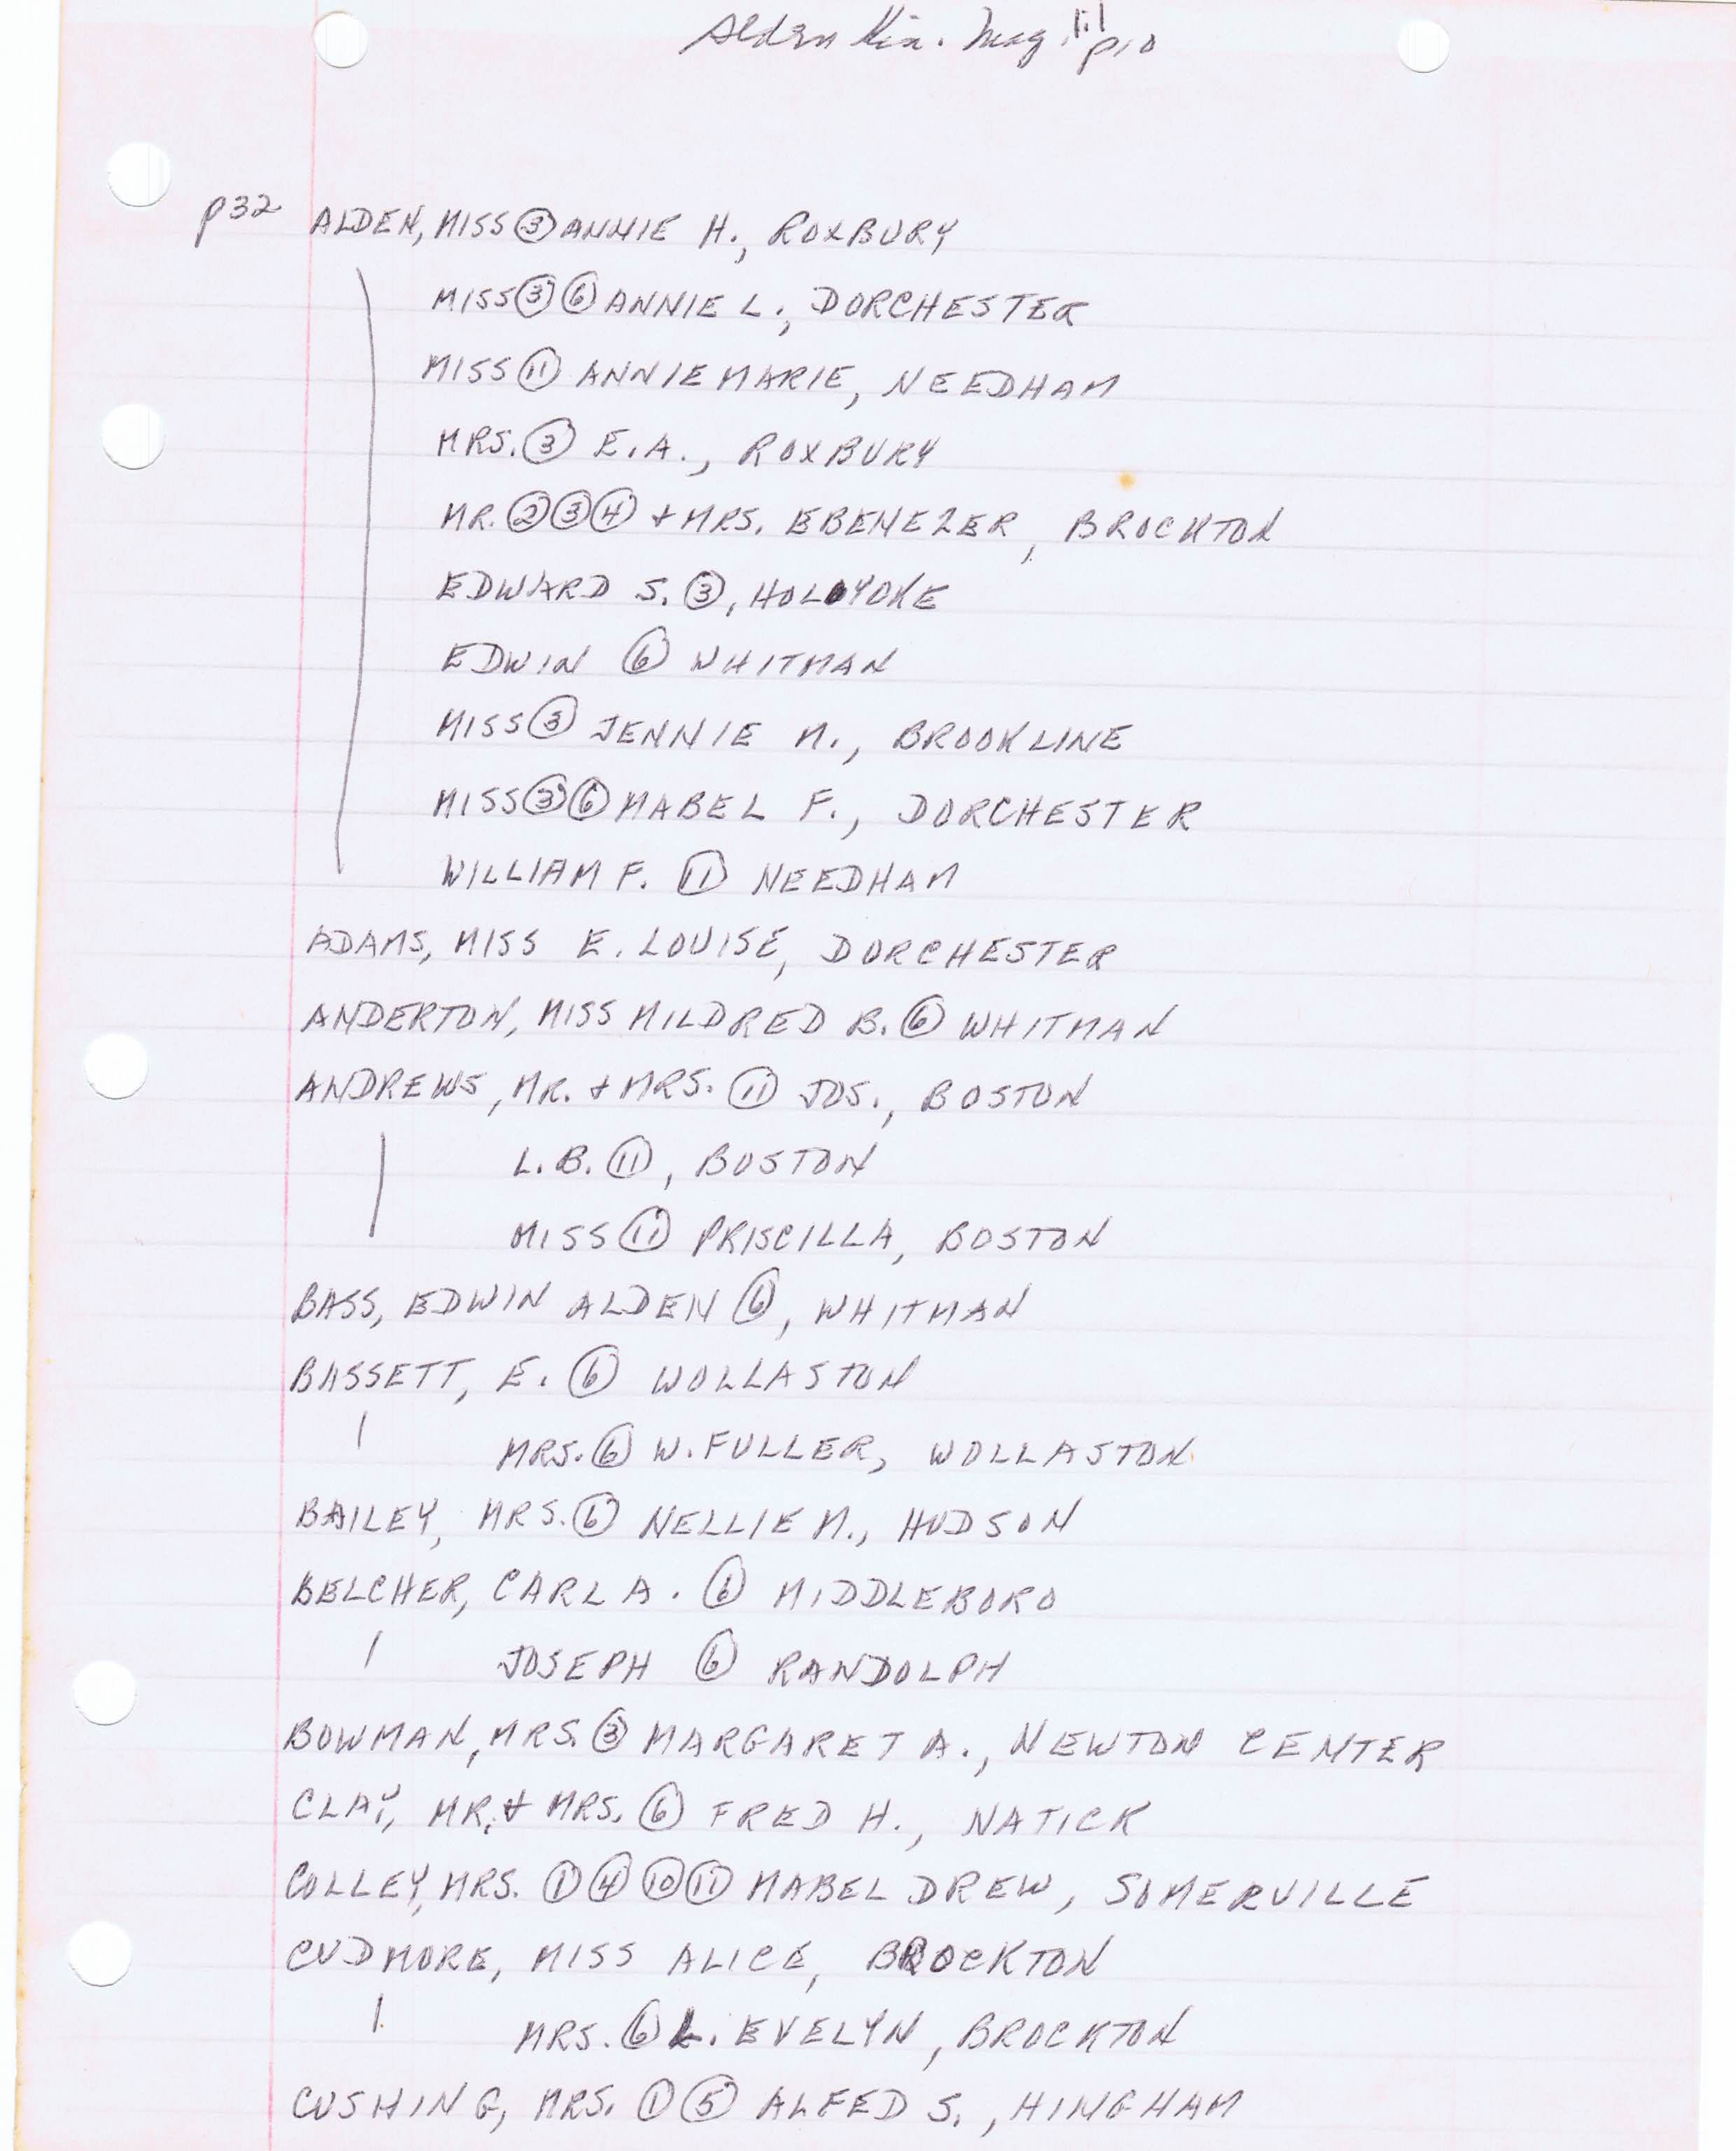 Alden Kin. Mag. 1:1 p10
p32 ALDEN, MISS ③ ANNIE H., ROXBURY
MISS ③ ⑥ ANNIE L., DORCHESTER
MISS ⑪ ANNIE MARIE, NEEDHAM
MRS. ③ E.A., ROXBURY
MR. ② ③ ④ + MRS. EBENEZER, BROCKTON
EDWARD S. ③, HOLYOKE
EDWIN ⑥ WHITMAN
MISS ③ JENNIE M., BROOKLINE
MISS ③ ⑥ MABEL F., DORCHESTER
WILLIAM F. ⑪ NEEDHAM
ADAMS, MISS E. LOUISE, DORCHESTER
ANDERTON, MISS MILDRED B. ⑥ WHITMAN
ANDREWS, MR. + MRS. ⑪ JOS., BOSTON
L.B. ⑪, BOSTON
MISS ⑪ PRISCILLA, BOSTON
BASS, EDWIN ALDEN ⑥, WHITMAN
BASSETT, E. ⑥ WOLLASTON
MRS. ⑥ W. FULLER, WOLLASTON
BAILEY, MRS. ⑥ NELLIE M., HUDSON
BELCHER, CARL A. ⑥ MIDDLEBORO
JOSEPH ⑥ RANDOLPH
BOWMAN, MRS. ③ MARGARET A., NEWTON CENTER
CLAY, MR. + MRS. ⑥ FRED H., NATICK
COLLEY, MRS. ① ④ ⑩ ⑪ MABEL DREW, SOMERVILLE
CUDMORE, MISS ALICE, BROCKTON
MRS. ⑥ L. EVELYN, BROCKTON
CUSHING, MRS. ① ⑤ ALFED S., HINGHAM